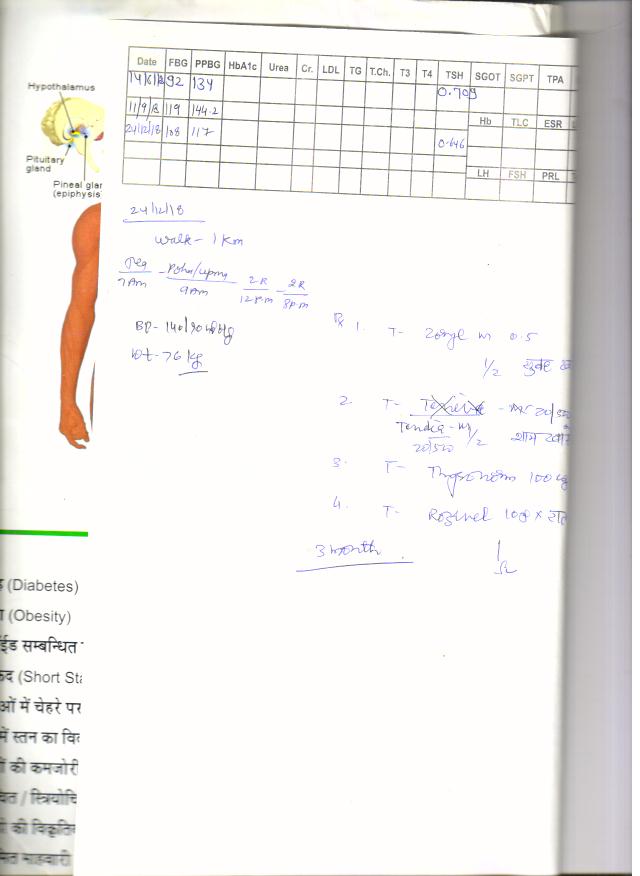 Hypothalamus
Pituitary
gland
Pineal glan
(epiphysis
Date FBG PPBG HbA1c Urea Cr. LDL TG T.Ch. T3 T4 TSH SGOT SGPT TPA
14/6/18 92 134 0.709
11/9/18 119 144.2
Hb TLC ESR
24/12/18 108 117 0.646
LH FSH PRL
24/12/18
Walk - 1 Km
Tea Poha/upma 2R 2R
7 Am 9 Am 12 pm 8 pm
BP - 140/90
Wt - 76 kg
Rx 1. T- m 0.5
1/2 सुबह
2. T- 20/500
Tendia - m 1/2 शाम
20/500
3. T- Thyronorm 100
4. T- 10 रात
3 month
(Diabetes)
(Obesity)
ईड सम्बन्धित
कद (Short Sta
ओं में चेहरे पर
में स्तन का विव
की कमजोरी
/ स्त्रियोचि
की विकृति
माहवारी